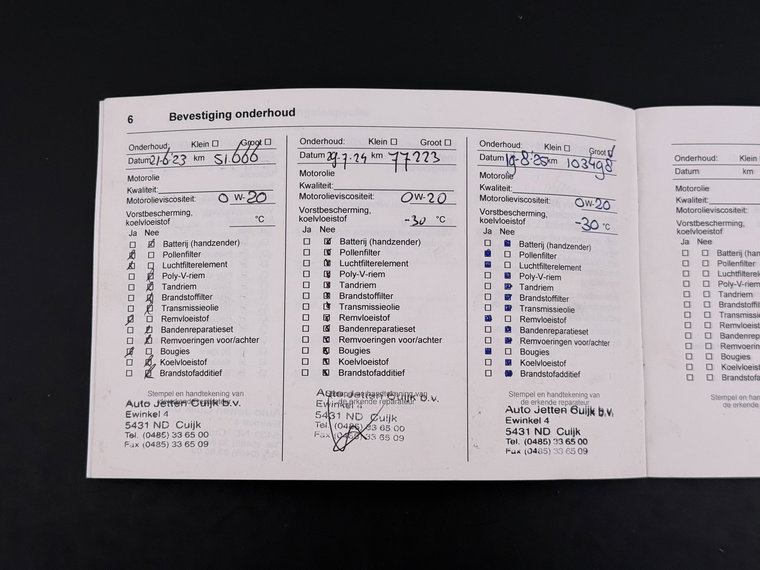 6 Bevestiging onderhoud
Onderhoud: Klein Groot
Datum 21-6-23 km 51.666
Motorolie
Kwaliteit:
Motorolieviscositeit: 0 W-20
Vorstbescherming,
koelvloeistof °C
Ja Nee
Batterij (handzender)
Pollenfilter
Luchtfilterelement
Poly-V-riem
Tandriem
Brandstoffilter
Transmissieolie
Remvloeistof
Bandenreparatieset
Remvoeringen voor/achter
Bougies
Koelvloeistof
Brandstofadditief
Stempel en handtekening van
Auto Jetten Cuijk b.v.
Ewinkel 4
5431 ND Cuijk
Tel. (0485) 33 65 00
Fax (0485) 33 65 09
Onderhoud: Klein Groot
Datum 29-7-24 km 77223
Motorolie
Kwaliteit:
Motorolieviscositeit: 0W-20
Vorstbescherming,
koelvloeistof -30 °C
Ja Nee
Batterij (handzender)
Pollenfilter
Luchtfilterelement
Poly-V-riem
Tandriem
Brandstoffilter
Transmissieolie
Remvloeistof
Bandenreparatieset
Remvoeringen voor/achter
Bougies
Koelvloeistof
Brandstofadditief
Stempel en handtekening van
de erkende reparateur
Auto Jetten Cuijk b.v.
Ewinkel 4
5431 ND Cuijk
Tel. (0485) 33 65 00
Fax (0485) 33 65 09
Onderhoud: Klein Groot
Datum 19-8-25 km 103498
Motorolie
Kwaliteit:
Motorolieviscositeit: 0W-20
Vorstbescherming,
koelvloeistof -30 °C
Ja Nee
Batterij (handzender)
Pollenfilter
Luchtfilterelement
Poly-V-riem
Tandriem
Brandstoffilter
Transmissieolie
Remvloeistof
Bandenreparatieset
Remvoeringen voor/achter
Bougies
Koelvloeistof
Brandstofadditief
Stempel en handtekening van
de erkende reparateur
Auto Jetten Cuijk b.v.
Ewinkel 4
5431 ND Cuijk
Tel. (0485) 33 65 00
Fax (0485) 33 65 09
Onderhoud: Klein
Datum km
Motorolie
Kwaliteit:
Motorolieviscositeit:
Vorstbescherming,
koelvloeistof
Ja Nee
Batterij (han
Pollenfilter
Luchtfiltere
Poly-V-rie
Tandriem
Brandstoff
Transmiss
Remvloeist
Bandenrep
Remvoerin
Bougies
Koelvloeist
Brandstofa
Stempel en
de er